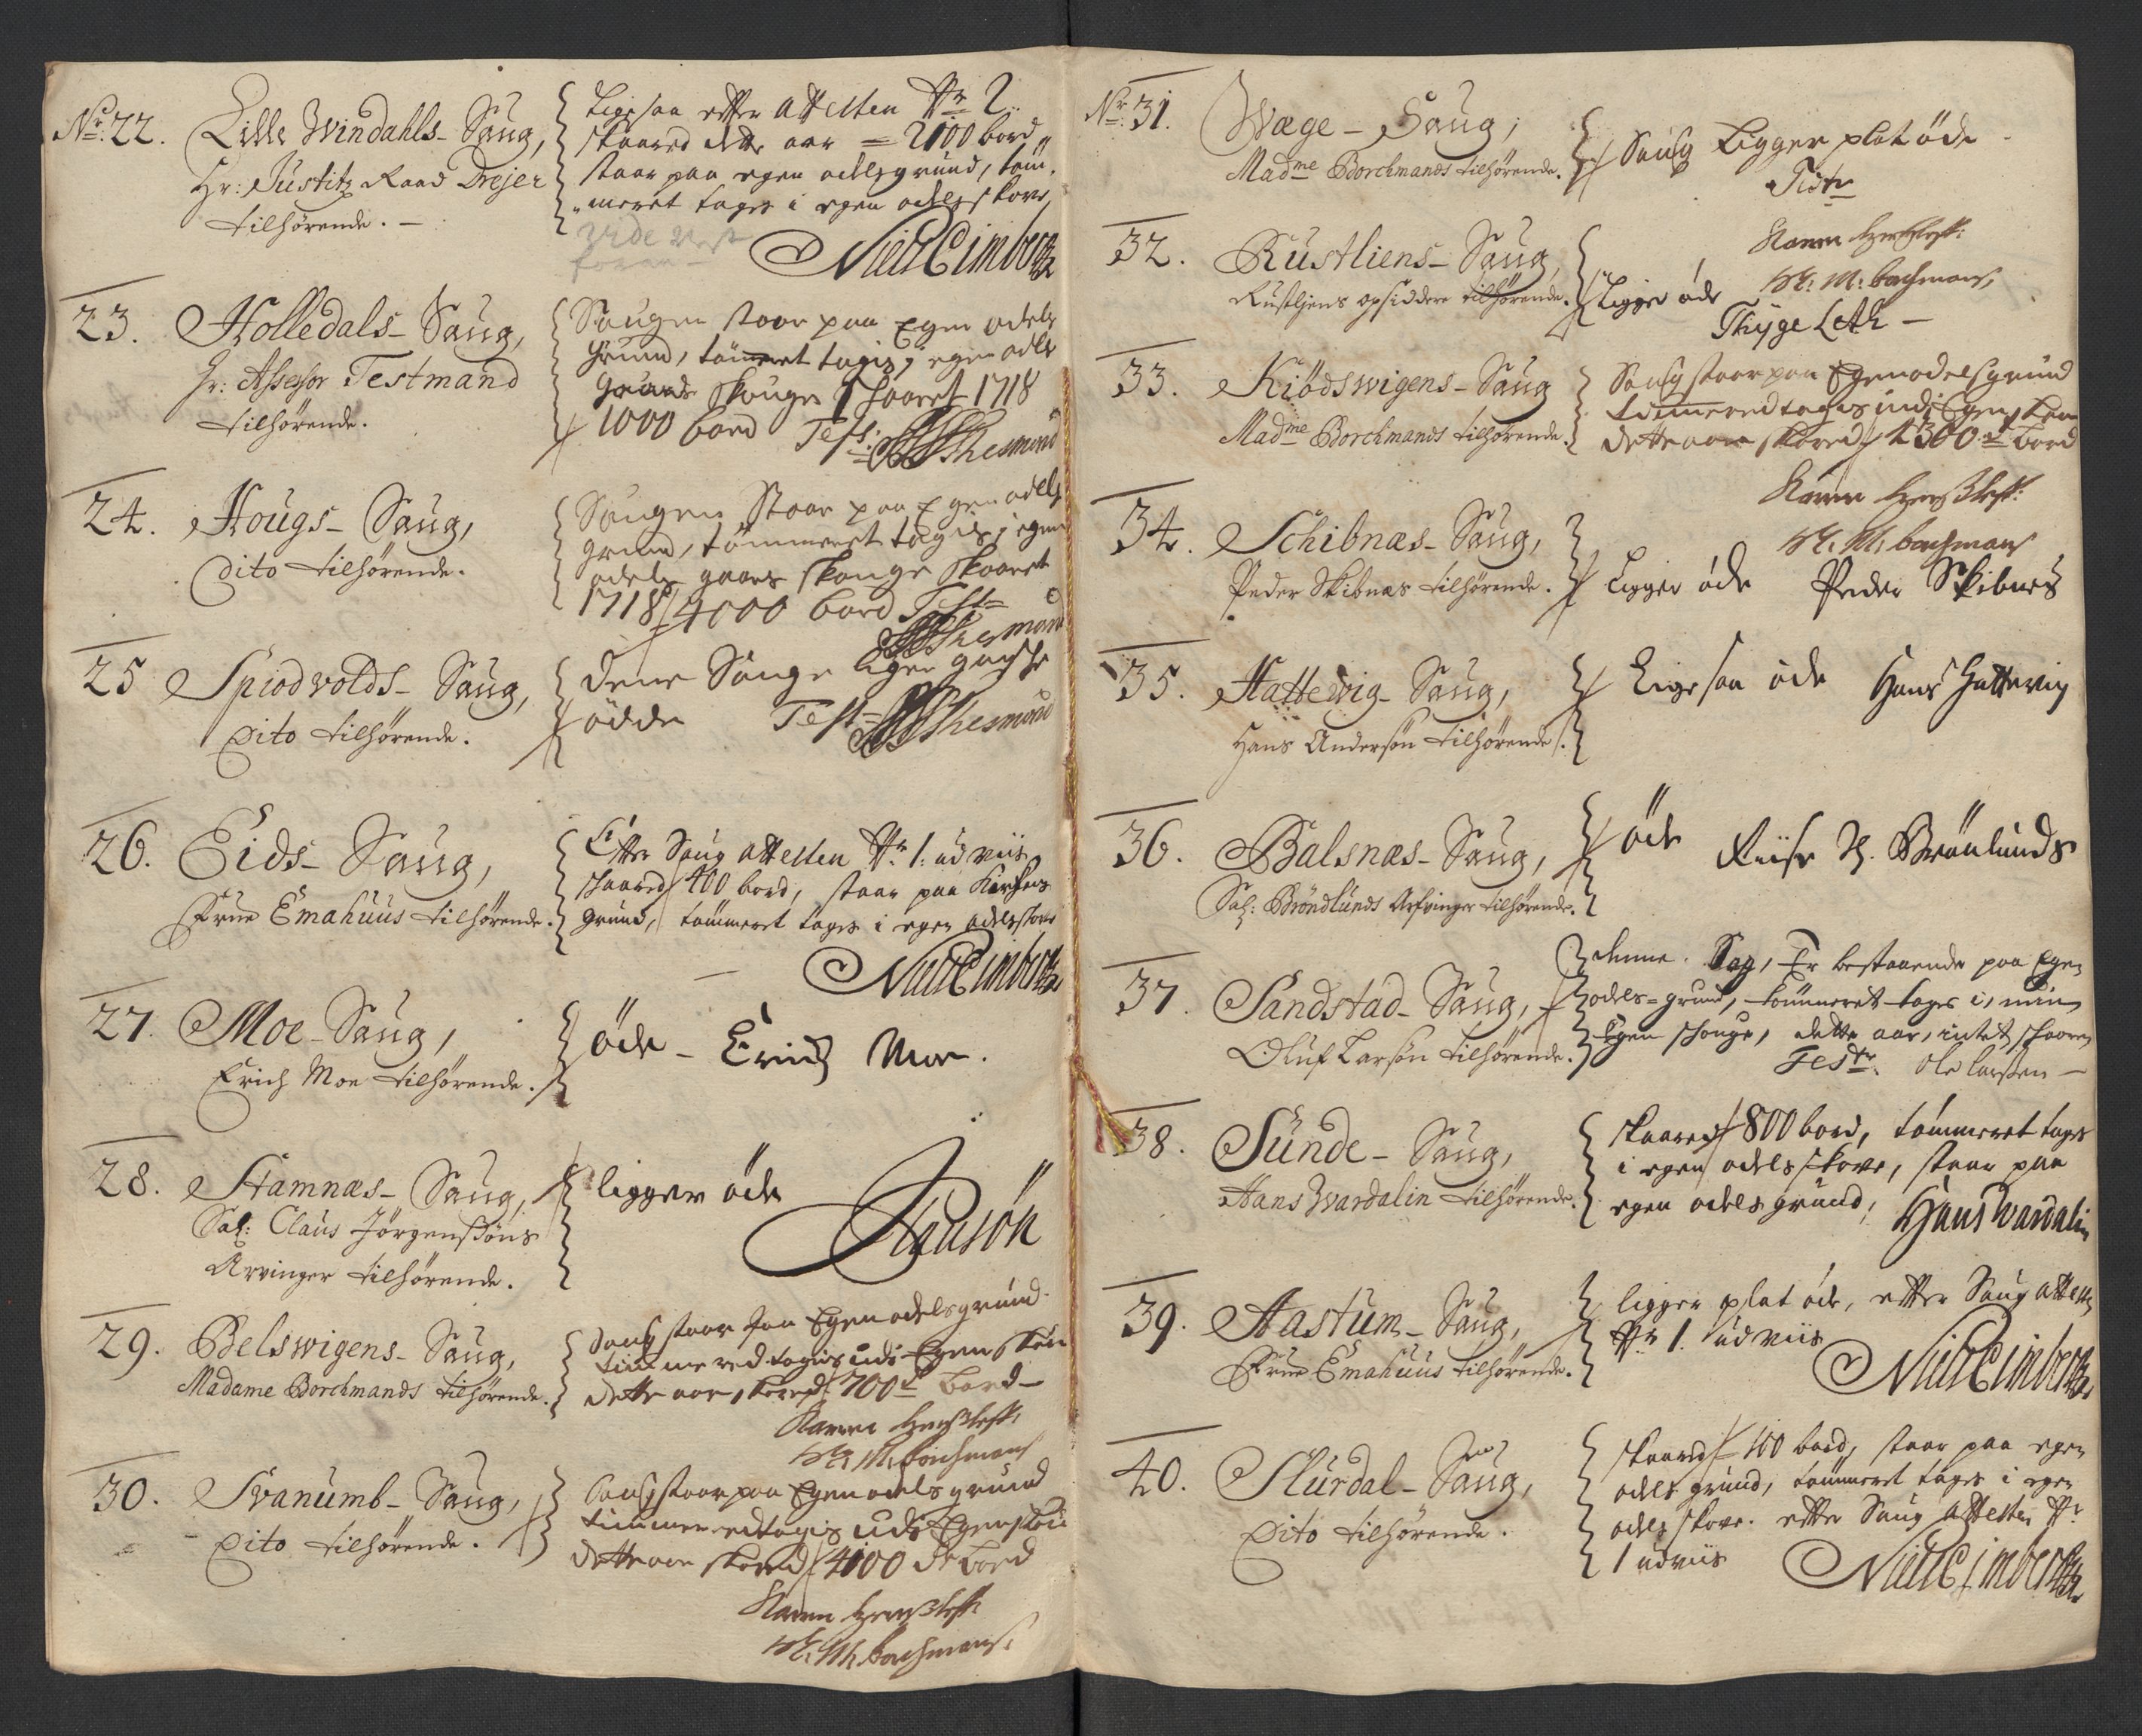 No: 22.
Lille Windahls- Saug,
Hr: Justitz Raad Drejer
tilhørende. -
Ligesaa efter attesten No 2
skaared dette aar = 2100 bord
staar paa egen odelsgrund, töm„
„meret tages i egen odelsskove,
vide
foran -
23.
Holledals- Saug,
Hr: Assessor Testmand
tilhørende.
Saugen staar paa Egen odels
Grund, tömmeret tagis i egen odels
skouge skaaret 1718
1000 bord Test:
24.
Hougs- Saug,
Dito tilhørende.
Saugen Staar paa Egen odels
grund, tömmeret tagis i egen
odels gaars skouge skaaret
1718 / 4000 bord Test
25
Spiodvolds- Saug,
Dito tilhørende.
denne Sauge liger gansche
ödde Test
26.
Eids- Saug,
Frue Emahuus tilhørende.
Efter Saug attesten No 1. udviis
skaared / 400 bord, staar paa Kirkens
grund, tömmeret tages i egen odelsskove
27.
Moe- Saug,
Erich Moe tilhørende.
öde - Erich Moe.
28.
Hamnæs- Saug,
Sal: Claus Jörgensöns
Arvinger tilhørende.
ligger öde
29.
Belswigens- Saug,
Madame Borchmands tilhørende.
Saug staar paa Egen odelsgrund
timmered tagis udi Egen skou
dette aar skored / 700 bord -
Karen
Sl: M: borchmans
30.
Svanumb- Saug,
Dito tilhørende.
Saug staar paa Egen odels grund
timmered tagis udi Egen skou
dette aar skored / 4100 st bord
Karen
Sl: M: borchmans
Nr: 31.
Wæge- Saug,
Madme Borchmands tilhørende.
Saug Ligger plat öde -
Test
Karen
Sl: M: borchmans,
32.
Rustliens- Saug,
Rustljens opsiddere tilhørende.
Ligger öde
Thyge Leth -
33.
Kiödswigens- Saug
Madme Borchmands tilhørende.
Saug staar paa Egen odelsgrund
timmered tagis udi Egen skou
dette aar skored / 2300 st bord
Karen
Sl: M: borchmans
34.
Schibnæs- Saug,
Peder Skibnæs tilhørende.
Ligger öde Peder Skibnes
35.
Hattewig- Saug,
Hans Andersön tilhørende.
Ligesaa öde Hans Hattevig
36.
Balsnæs- Saug,
Sal: Bröndlunds Arfvinger tilhørende.
öde
37.
Sandstad- Saug,
Oluf Larsön tilhørende.
denne Sag, Er bestaaende paa Egen
odels-grund, tömmeret tages i, min
Egen schouge, dette aar, intet schaaren
Test. Ole larssen -
38.
Sunde- Saug,
Hans Wardalin tilhørende.
skaared / 800 bord, tömmeret tages
i egen odels skove, staar paa
egen odels grund, Hans Wardalin
39.
Hastum- Saug,
Frue Emahuus tilhørende.
ligger plat öde, efter Saug attesten
No 1. udviis
40.
Slurdal- Saug,
Dito tilhørende.
skaared / 100 bord, staar paa egen
odels grund, tömmeret tages i egen
odels skove. efter Saug attesten No
1 udviis